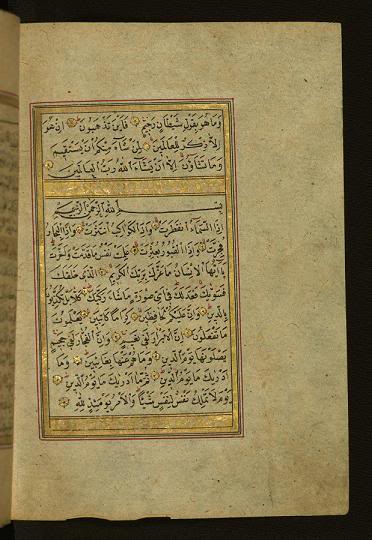 وَمَا هُوَ بِقَوْلِ شَيْطَانٍ رَجِيمٍ فَأَيْنَ تَذْهَبُونَ إِنْ هُوَ
إِلَّا ذِكْرٌ لِلْعَالَمِينَ لِمَنْ شَاءَ مِنْكُمْ أَنْ يَسْتَقِيمَ
وَمَا تَشَاؤُنَ إِلَّا أَنْ يَشَاءَ اللهُ رَبُّ الْعَالَمِينَ
بِسْمِ اللهِ الرَّحْمٰنِ الرَّحِيمِ
إِذَا السَّمَاءُ انْفَطَرَتْ وَإِذَا الْكَوَاكِبُ انْتَثَرَتْ وَإِذَا الْبِحَارُ
فُجِّرَتْ وَإِذَا الْقُبُورُ بُعْثِرَتْ عَلِمَتْ نَفْسٌ مَا قَدَّمَتْ وَأَخَّرَتْ
يَا أَيُّهَا الْإِنْسَانُ مَا غَرَّكَ بِرَبِّكَ الْكَرِيمِ الَّذِي خَلَقَكَ
فَسَوّٰيكَ فَعَدَلَكَ فِي أَيِّ صُورَةٍ مَا شَاءَ رَكَّبَكَ كَلَّا بَلْ تُكَذِّبُونَ
بِالدِّينِ وَإِنَّ عَلَيْكُمْ لَحَافِظِينَ كِرَامًا كَاتِبِينَ يَعْلَمُونَ
مَا تَفْعَلُونَ إِنَّ الْأَبْرَارَ لَفِي نَعِيمٍ وَإِنَّ الْفُجَّارَ لَفِي جَحِيمٍ
يَصْلَوْنَهَا يَوْمَ الدِّينِ وَمَا هُمْ عَنْهَا بِغَائِبِينَ وَمَا
أَدْرٰيكَ مَا يَوْمُ الدِّينِ ثُمَّ مَا أَدْرٰيكَ مَا يَوْمُ الدِّينِ
يَوْمَ لَا تَمْلِكُ نَفْسٌ لِنَفْسٍ شَيْئًا وَالْأَمْرُ يَوْمَئِذٍ لِلهِ